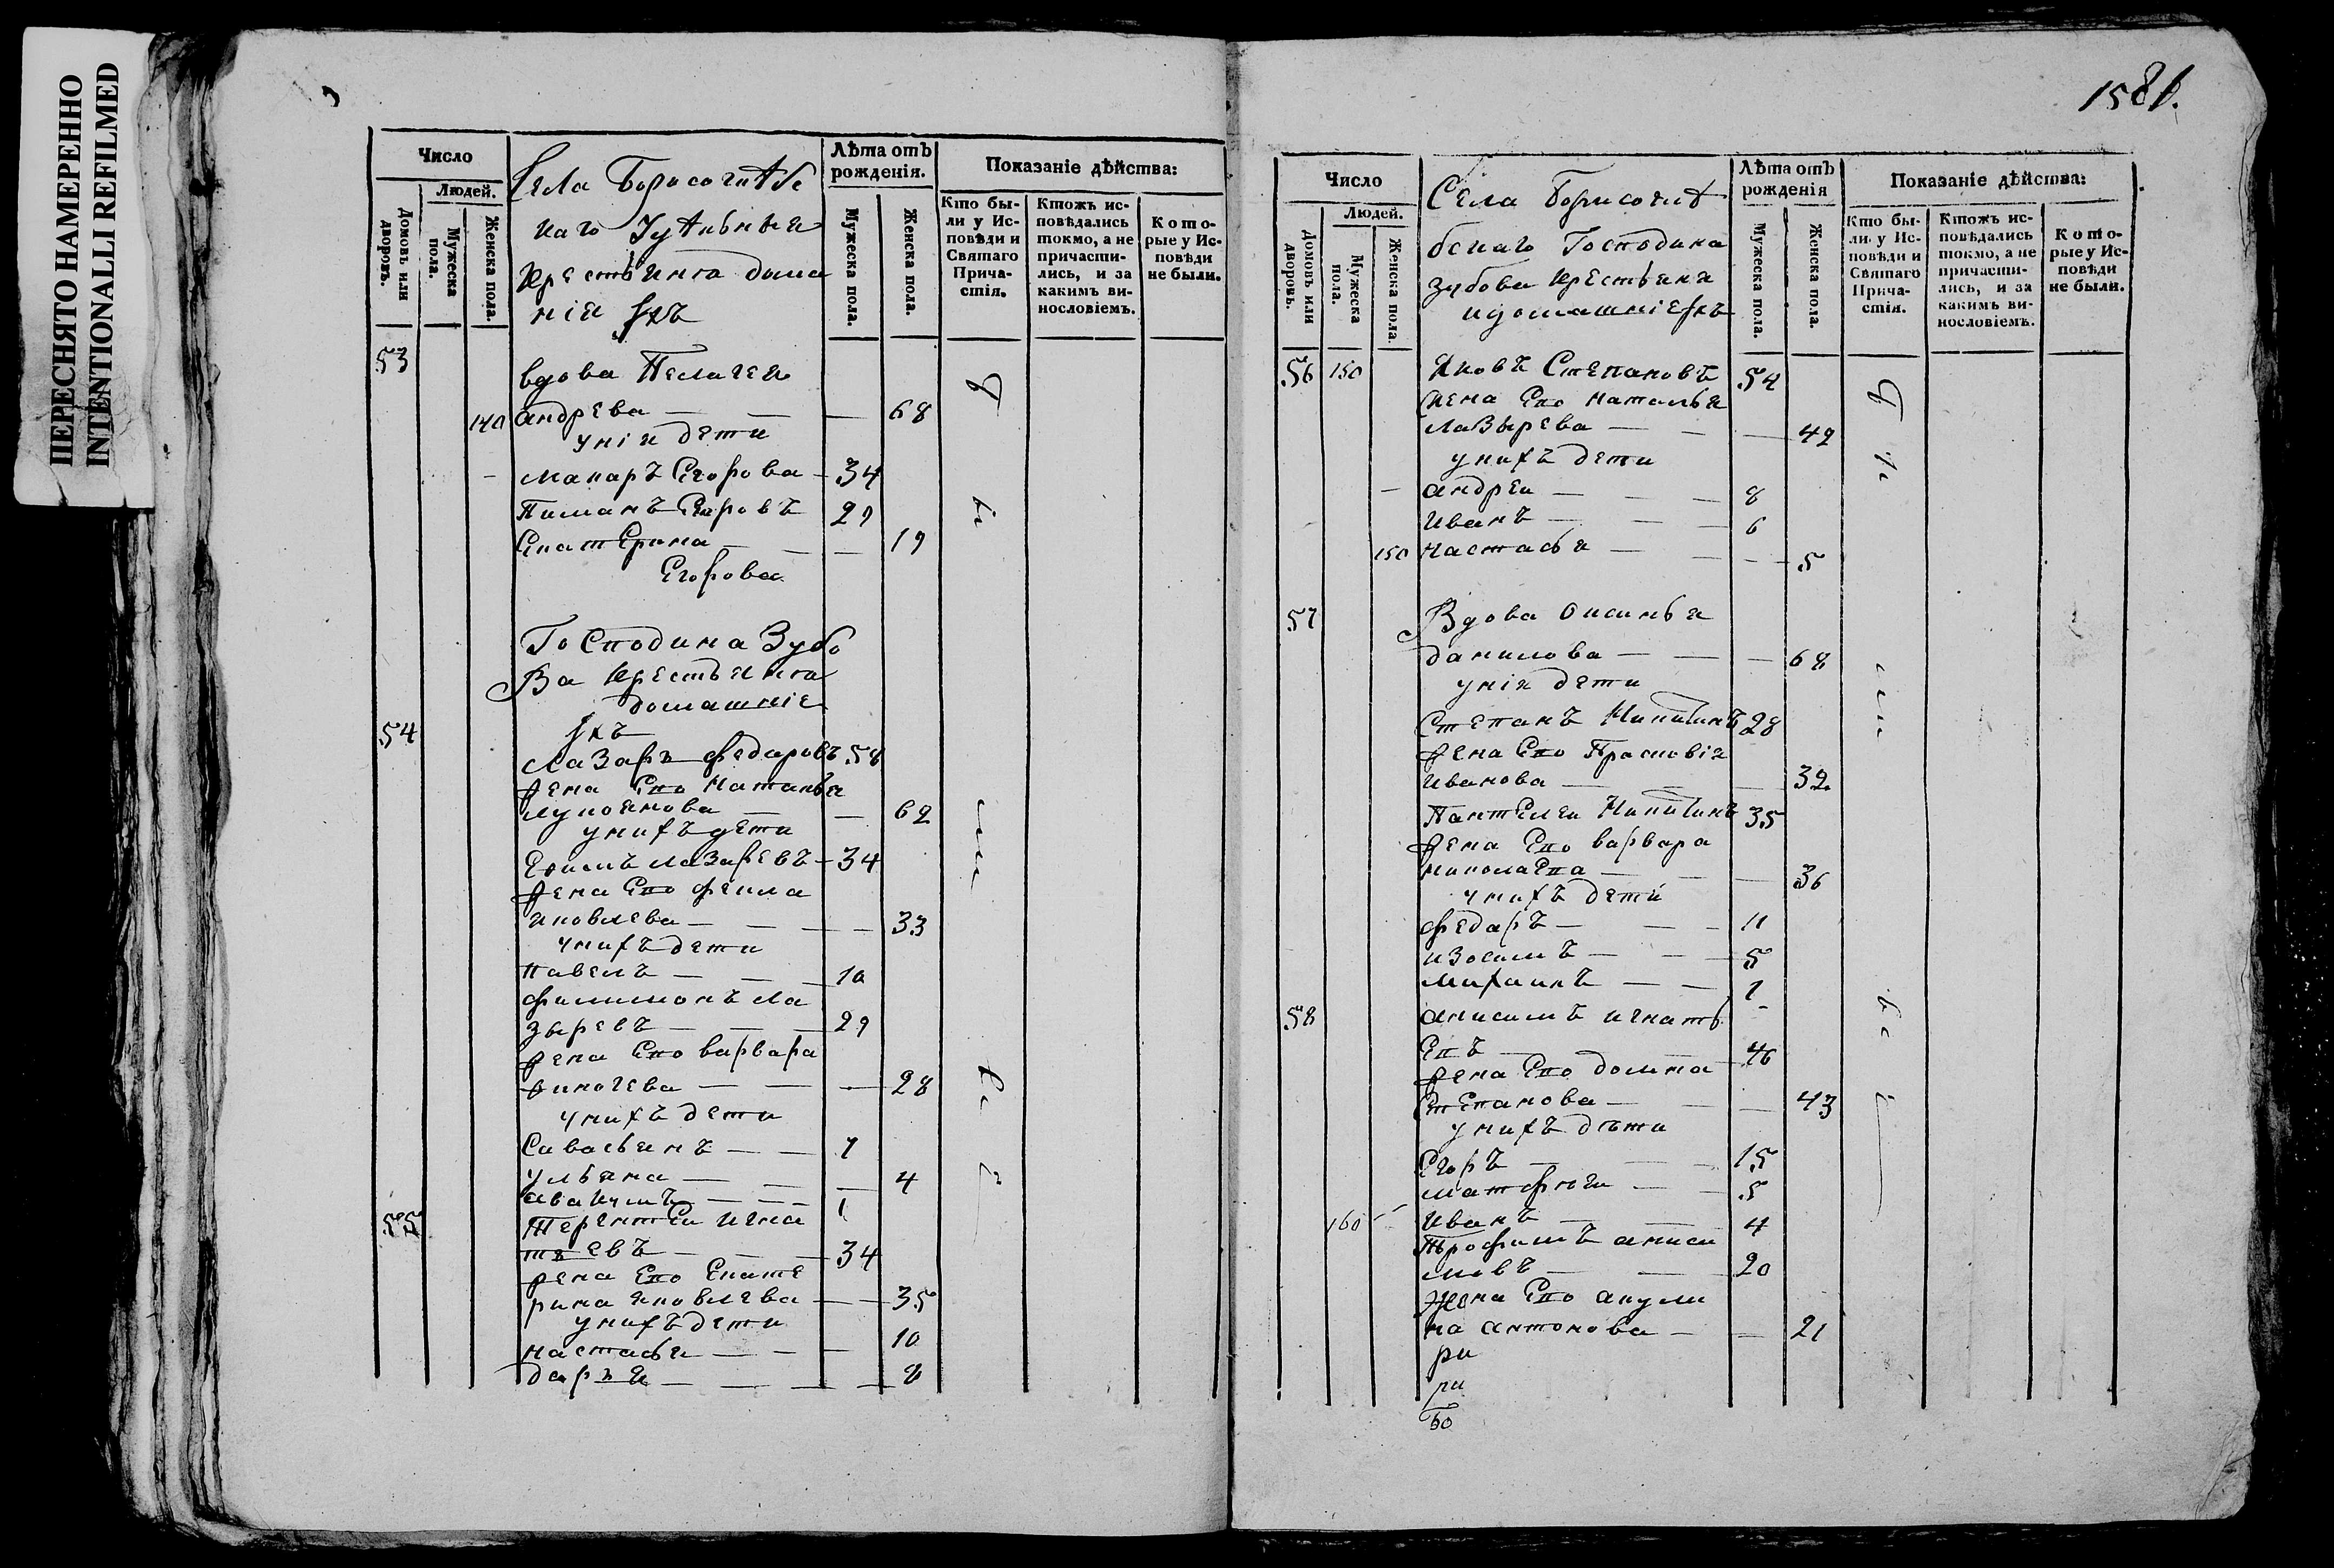 ПЕРЕСНЯТО НАМЕРЕННО
INTENTIONALLI REFILMED
Число
Людей.
Домовъ или дворовъ.
Мужеска пола.
Женска пола.
Села Борисоглѣбс
каго
крестьянга дома
ніи ихъ
Лѣта отъ рожденія.
Мужеска пола.
Женска пола.
Показаніе дѣйства:
Кто бы-
ли у Ис-
повѣди и
Святаго
Прича-
стія.
Ктожъ ис-
повѣдались
токмо, а не
причасти-
лись, и за
какимъ ви-
нословіемъ.
Кото-
рые у Ис-
повѣди
не были.
53 вдова Пелагея
140 андрева — — — 68
уніи дети
макаръ Егорова - 34
Пиманъ 29
Екатерина — — — 19
Егорова
Господина Зубо
Ва крестьянга
домашніе
54 ихъ
Лазаръ Федаровъ 58
жена Его Наталья
лукоянова — — 62
унихъ дети
Ефимъ лазаревъ - 34
жена Его фекла
яковлева — — — 33
унихъ дети
павелъ — — — 10
филимонъ ла
зыревъ — — — 29
жена Его варвара
— — — 28
унихъ дети
Савасьянъ — — 7
ульяна — — — 4
авакумъ — — — 1
55 Терентеи игна
тъевъ — — — 34
жена Его Екате
рина яковлева — — 35
унихъ дети
настасья — — — 10
даръя — — — — 8
1581.
Число
Людей.
Домовъ или дворовъ.
Мужеска пола.
Женска пола
Села Борисоглѣ
бскаго Господина
зубова крестьяня
идомашніе ихъ
Лѣта отъ
рожденія
Мужеска пола.
Женска пола.
Показаніе дѣйства:
Кто бы-
ли у Ис-
повѣди и
Святаго
Прича-
стія.
Ктожъ ис-
повѣдались
токмо, а не
причасти-
лись, и за
какимъ ви-
нословіемъ.
Кото-
рые у Ис-
повѣди
не были.
56 150 Яковъ Степановъ 54
жена Его наталья
лазырева — — — 42
унихъ дети
андреи — — — 8
Иванъ — — — 6
150 настасья — — — 5
57 Вдова оксинья
данилова — — — 68
уніи дети
Степанъ Никитинъ 28
жена Его Прасковія
иванова — — 32
Пантелеи Никитинъ 35
жена Его варвара
николаева — — — 36
унихъ дети
федаръ — — — 11
изосимъ — — — 5
михаилъ — — 1
58 анисимъ игнать
Евъ — — 46
жена Его домна
Степанова — — — 43
унихъ дѣти
Егоръ — — — 15
матфеи — — 5
160 Иванъ — — 4
Трофимъ аниси
мовъ — — 20
жена Его акули
на антонова — — 21
ри
ри
бо